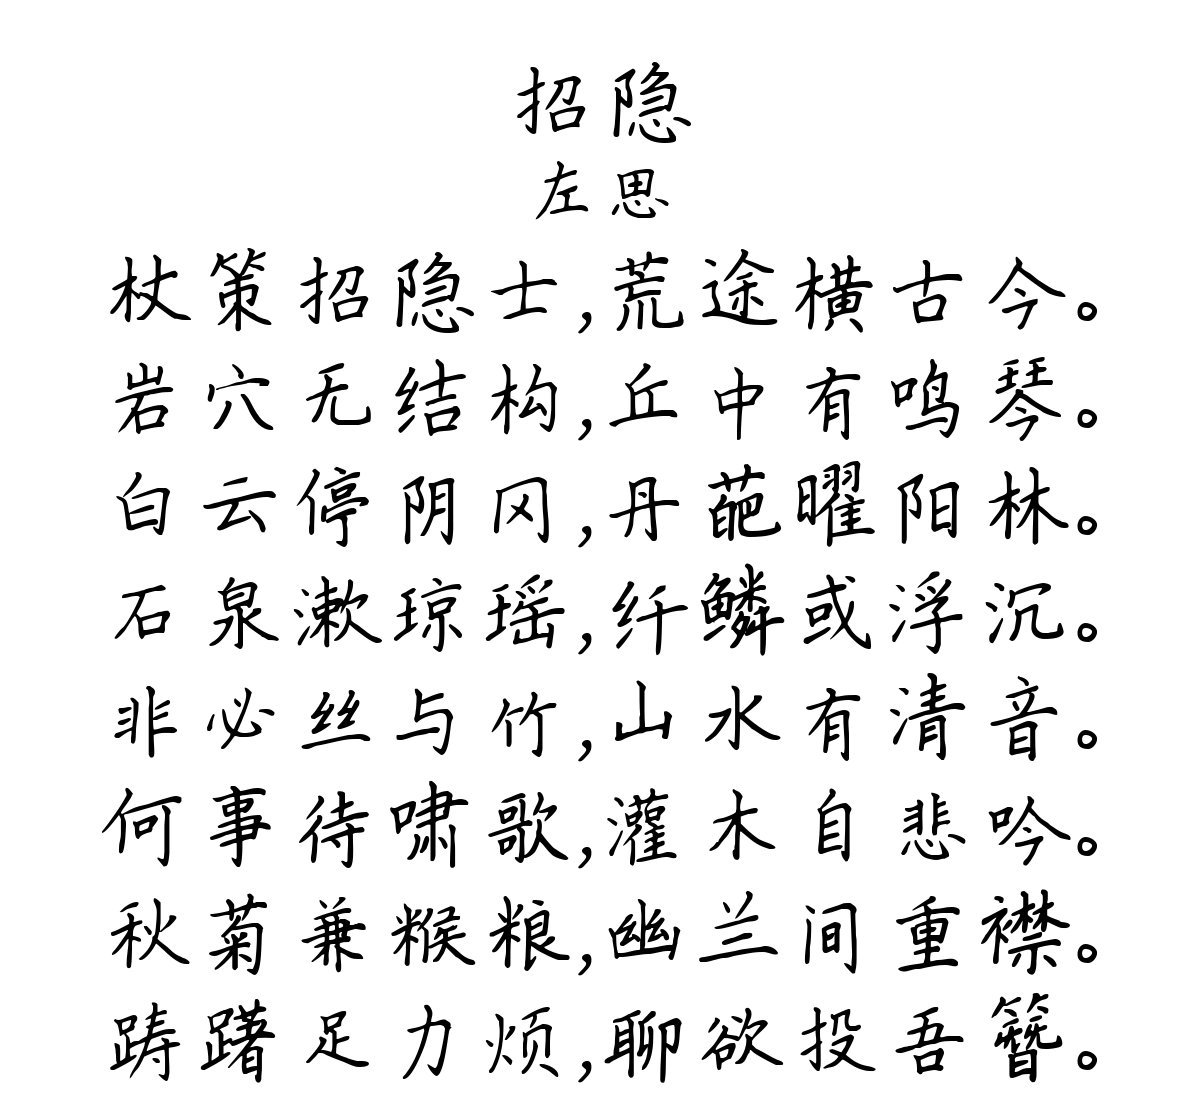 招隐
左思
杖策招隐士,荒途横古今。
岩穴无结构,丘中有鸣琴。
白云停阴冈,丹葩曜阳林。
石泉漱琼瑶,纤鳞或浮沉。
非必丝与竹,山水有清音。
何事待啸歌,灌木自悲吟。
秋菊兼糇粮,幽兰间重襟。
踌躇足力烦,聊欲投吾簪。